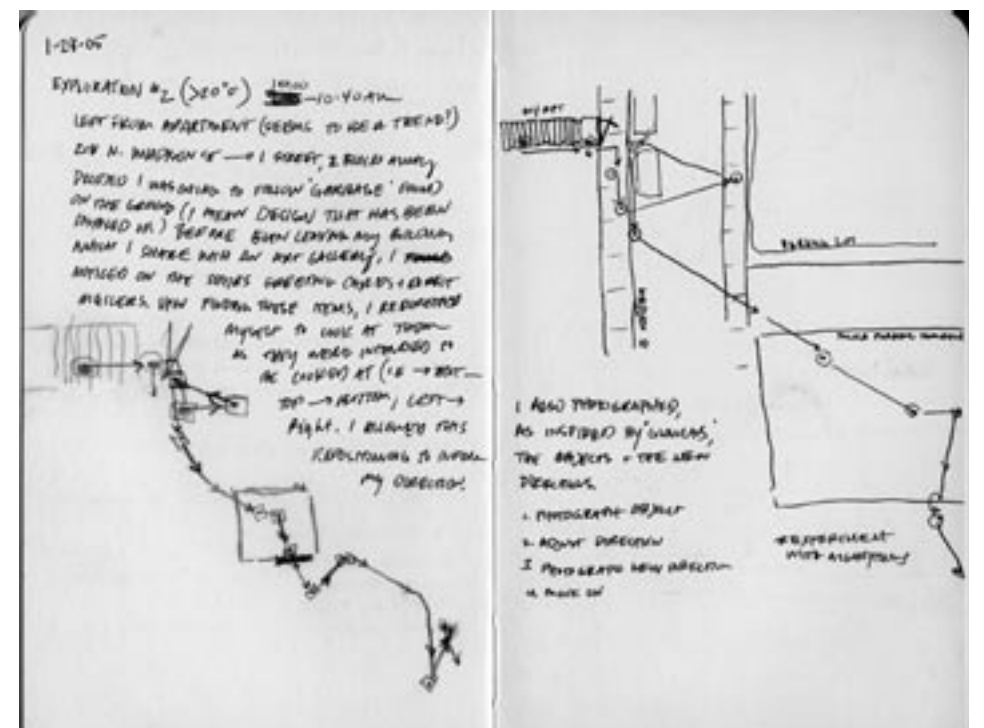 1-28-05
EXPLORATION #2 (>20°F) 10:40AM
LEFT FROM APARTMENT (SEEMS TO BE A TREND!)
N. → 1 STREET,
DECIDED I WAS GOING TO FOLLOW 'GARBAGE' FOUND
ON THE GROUND (I MEAN DESIGN THAT HAS BEEN
) BEFORE EVEN LEAVING MY BUILDING
WHICH I SHARE WITH AN ART GALLERY, I
NOTICED ON THE STAIRS GREETING CARDS + EXHIBIT
MAILERS. UPON FINDING THESE ITEMS, I REPOSITIONED
MYSELF TO LOOK AT THEM
AS THEY WERE INTENDED TO
BE LOOKED AT (I.E →
TOP → BOTTOM, LEFT →
RIGHT. I ALLOWED THIS
REPOSITIONING TO INFORM
MY DIRECTION.
MY APT
PARKING LOT
I ALSO PHOTOGRAPHED,
AS INSPIRED BY
THE OBJECTS + THE NEW
DIRECTIONS.
1. PHOTOGRAPH OBJECT
2. ADJUST DIRECTION
3. PHOTOGRAPH NEW DIRECTION
4. MOVE ON
EXPERIMENT
WITH ALGORITHMS